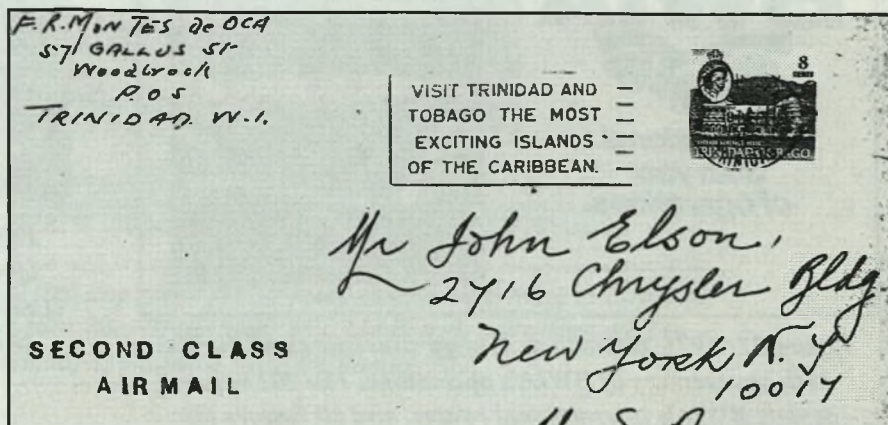 F.R. MONTES de OCA
57 GALLUS St
Woodbrook
P.O.S
TRINIDAD. W.I.
VISIT TRINIDAD AND
TOBAGO THE MOST
EXCITING ISLANDS
OF THE CARIBBEAN.
8
CENTS
TRINIDAD TOBAGO
Mr John Elson,
2716 Chrysler Bldg.
New York N.Y
10017
U.S.A
SECOND CLASS
AIRMAIL